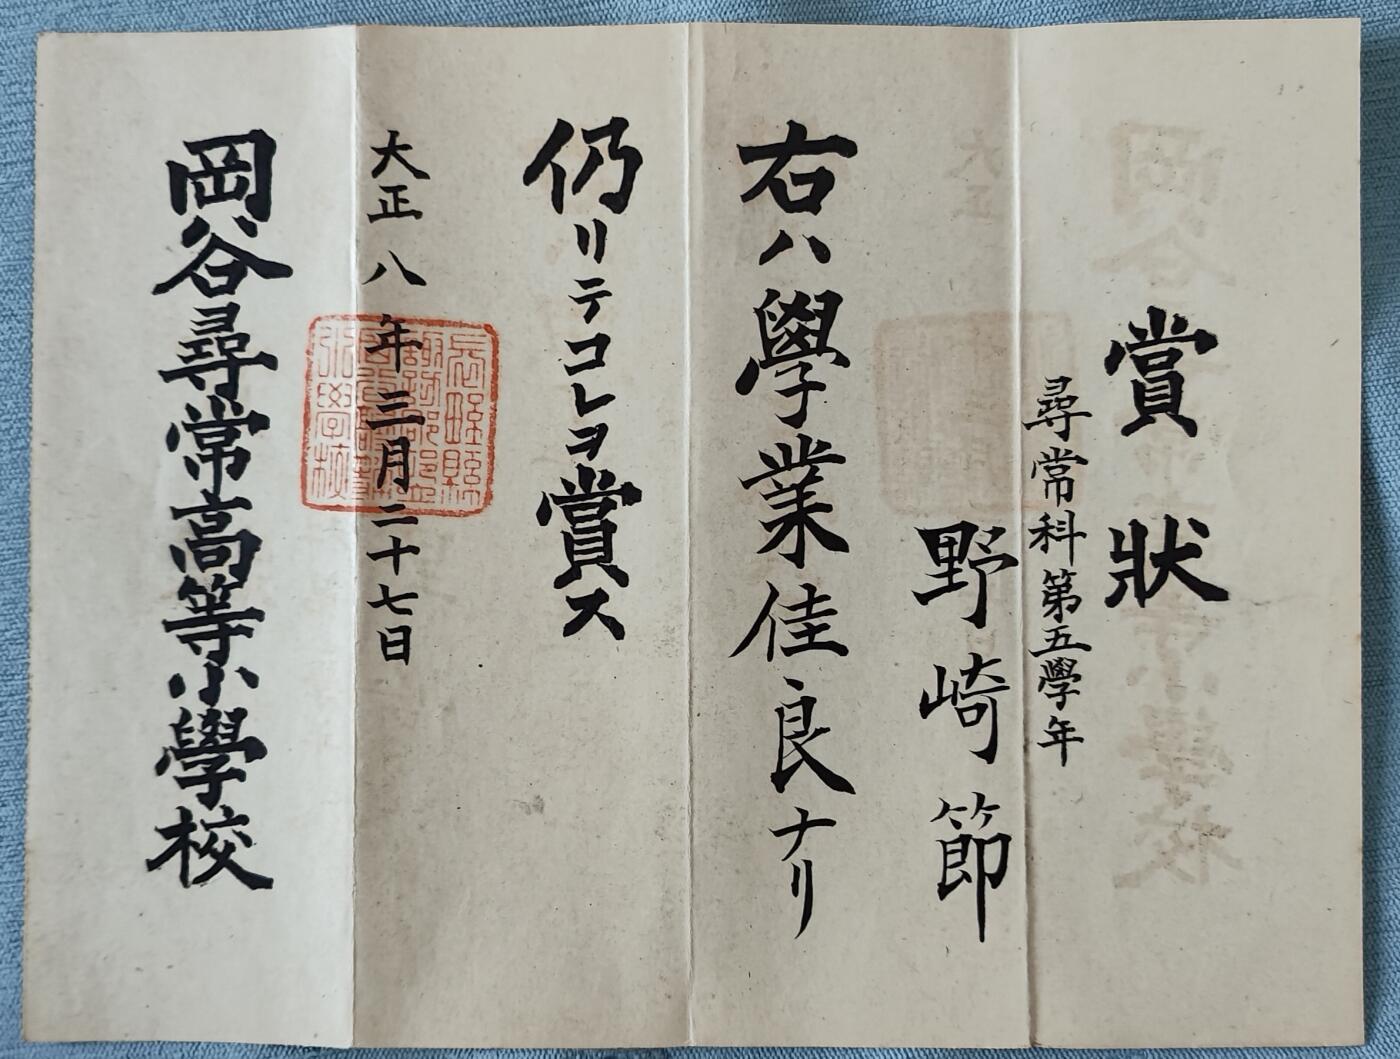 賞狀
尋常科第五學年
野崎節
右ハ學業佳良ナリ
仍リテコレヲ賞ス
大正八年三月二十七日
岡谷尋常高等小學校